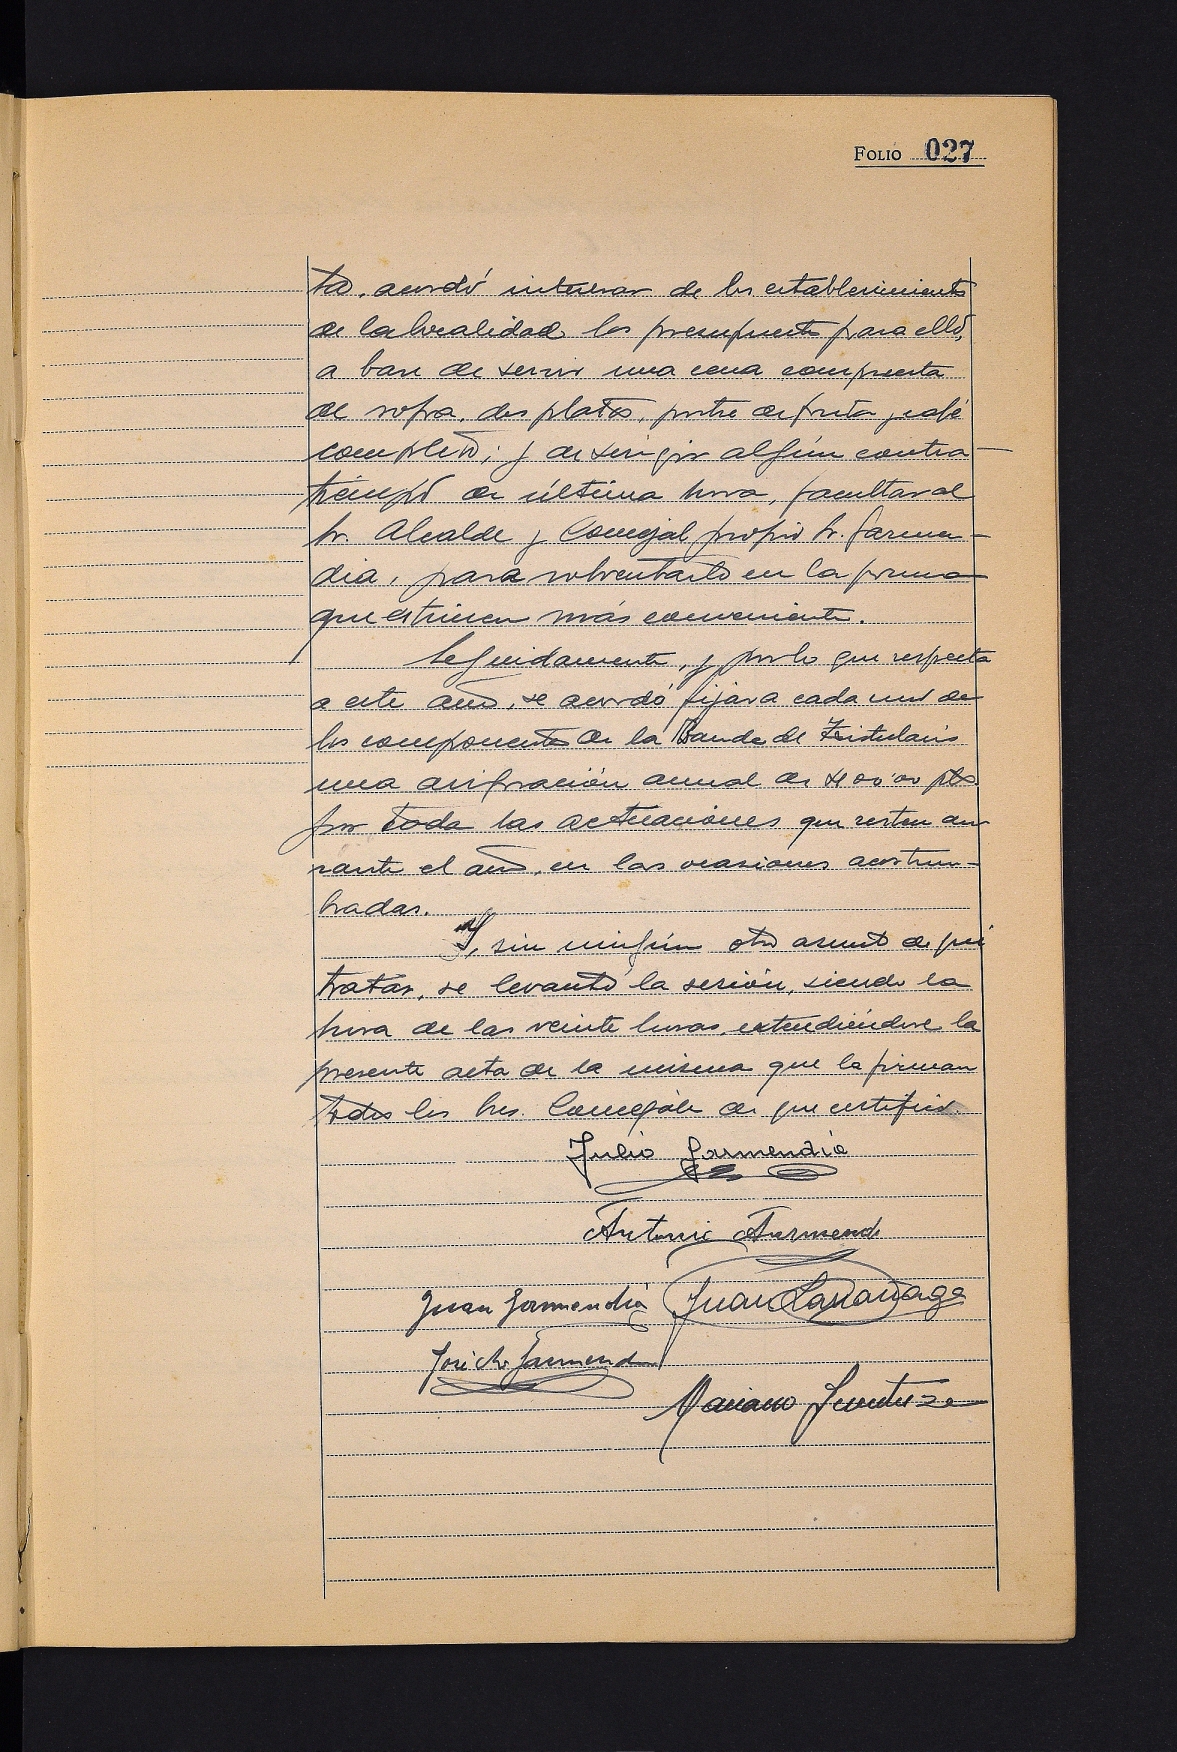 FOLIO 027
to, acordó interesar de los establecimientos
de la localidad los presupuestos para ello,
a base de servir una cena compuesta
de sopa, dos platos, postre de fruta y café
completo; y de surgir algún contra-
tiempo de última hora, facultar al
Sr. Alcalde y Concejal propio Sr. Garmen-
dia, para solventarlo en la forma
que estimen más conveniente.
Seguidamente, y por lo que respecta
a este año, se acordó fijar a cada uno de
los componentes de la Banda de Txistularis
una asignación anual de 400'00 pts.
por toda las actuaciones que resten du-
rante el año, en las ocasiones acostum-
bradas.
Y, sin ningún otro asunto de qué
tratar, se levantó la sesión, siendo la
hora de las veinte horas, extendiéndose la
presente acta de la misma que la firman
todos los Sres. Concejales de que certifico.
Julio Garmendia
Antonio
Juan Garmendia Juan Larrañaga
José Mª Garmendia
Mariano